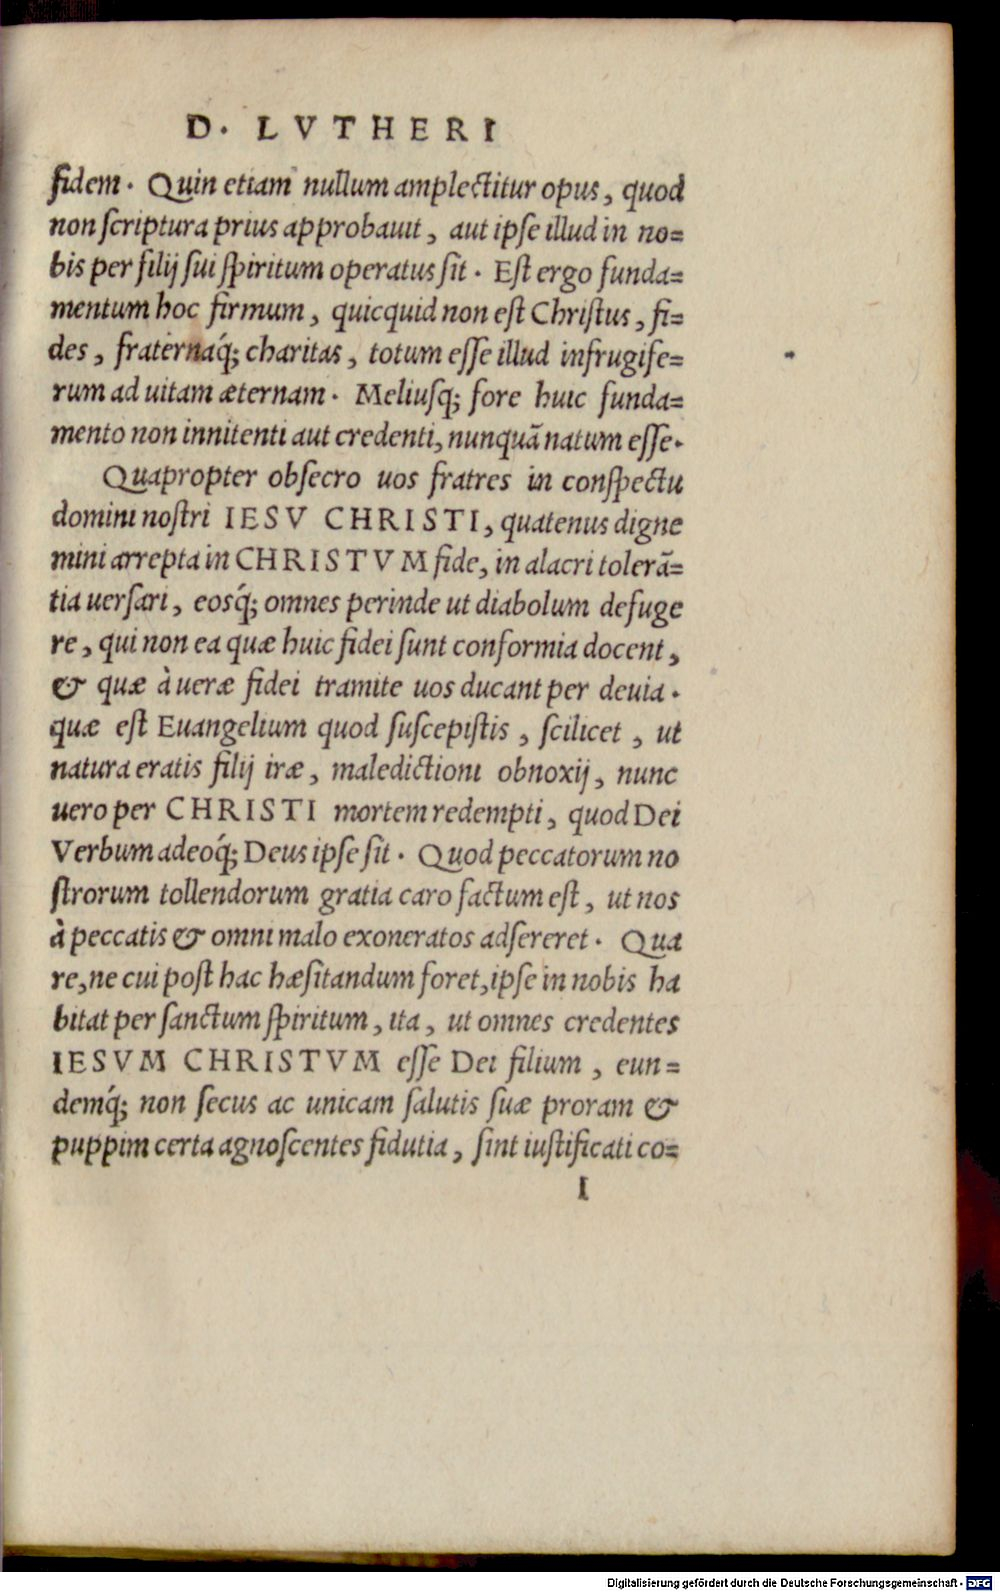 D. LVTHERI
fidem. Quin etiam nullum amplectitur opus, quod
non ſcriptura prius approbauit, aut ipſe illud in no=
bis per filij ſui ſpiritum operatus ſit. Eſt ergo funda=
mentum hoc firmum, quicquid non eſt Chriſtus, fi=
des, fraternaq́; charitas, totum eſſe illud infrugife=
rum ad uitam æternam. Meliuſq; fore huic funda=
mento non innitenti aut credenti, nunquã natum eſſe.
Quapropter obſecro uos fratres in conſpectu
domini noſtri IESV CHRISTI, quatenus digne
mini arrepta in CHRISTVM fide, in alacri tolerã=
tia uerſari, eosq́; omnes perinde ut diabolum defuge
re, qui non ea quæ huic fidei ſunt conformia docent,
& quæ à ueræ fidei tramite uos ducant per deuia.
quæ eſt Euangelium quod ſuſcepiſtis, ſcilicet, ut
natura eratis filij iræ, maledictioni obnoxij, nunc
uero per CHRISTI mortem redempti, quod Dei
Verbum adeoq́; Deus ipſe ſit. Quod peccatorum no
ſtrorum tollendorum gratia caro factum eſt, ut nos
à peccatis & omni malo exoneratos adſereret. Qua
re, ne cui poſt hac hæſitandum foret, ipſe in nobis ha
bitat per ſanctum ſpiritum, ita, ut omnes credentes
IESVM CHRISTVM eſſe Dei filium, eun=
demq́; non ſecus ac unicam ſalutis ſuæ proram &
puppim certa agnoſcentes fidutia, ſint iuſtificati co=
I
Digitalisierung gefördert durch die Deutsche Forschungsgemeinschaft - DFG